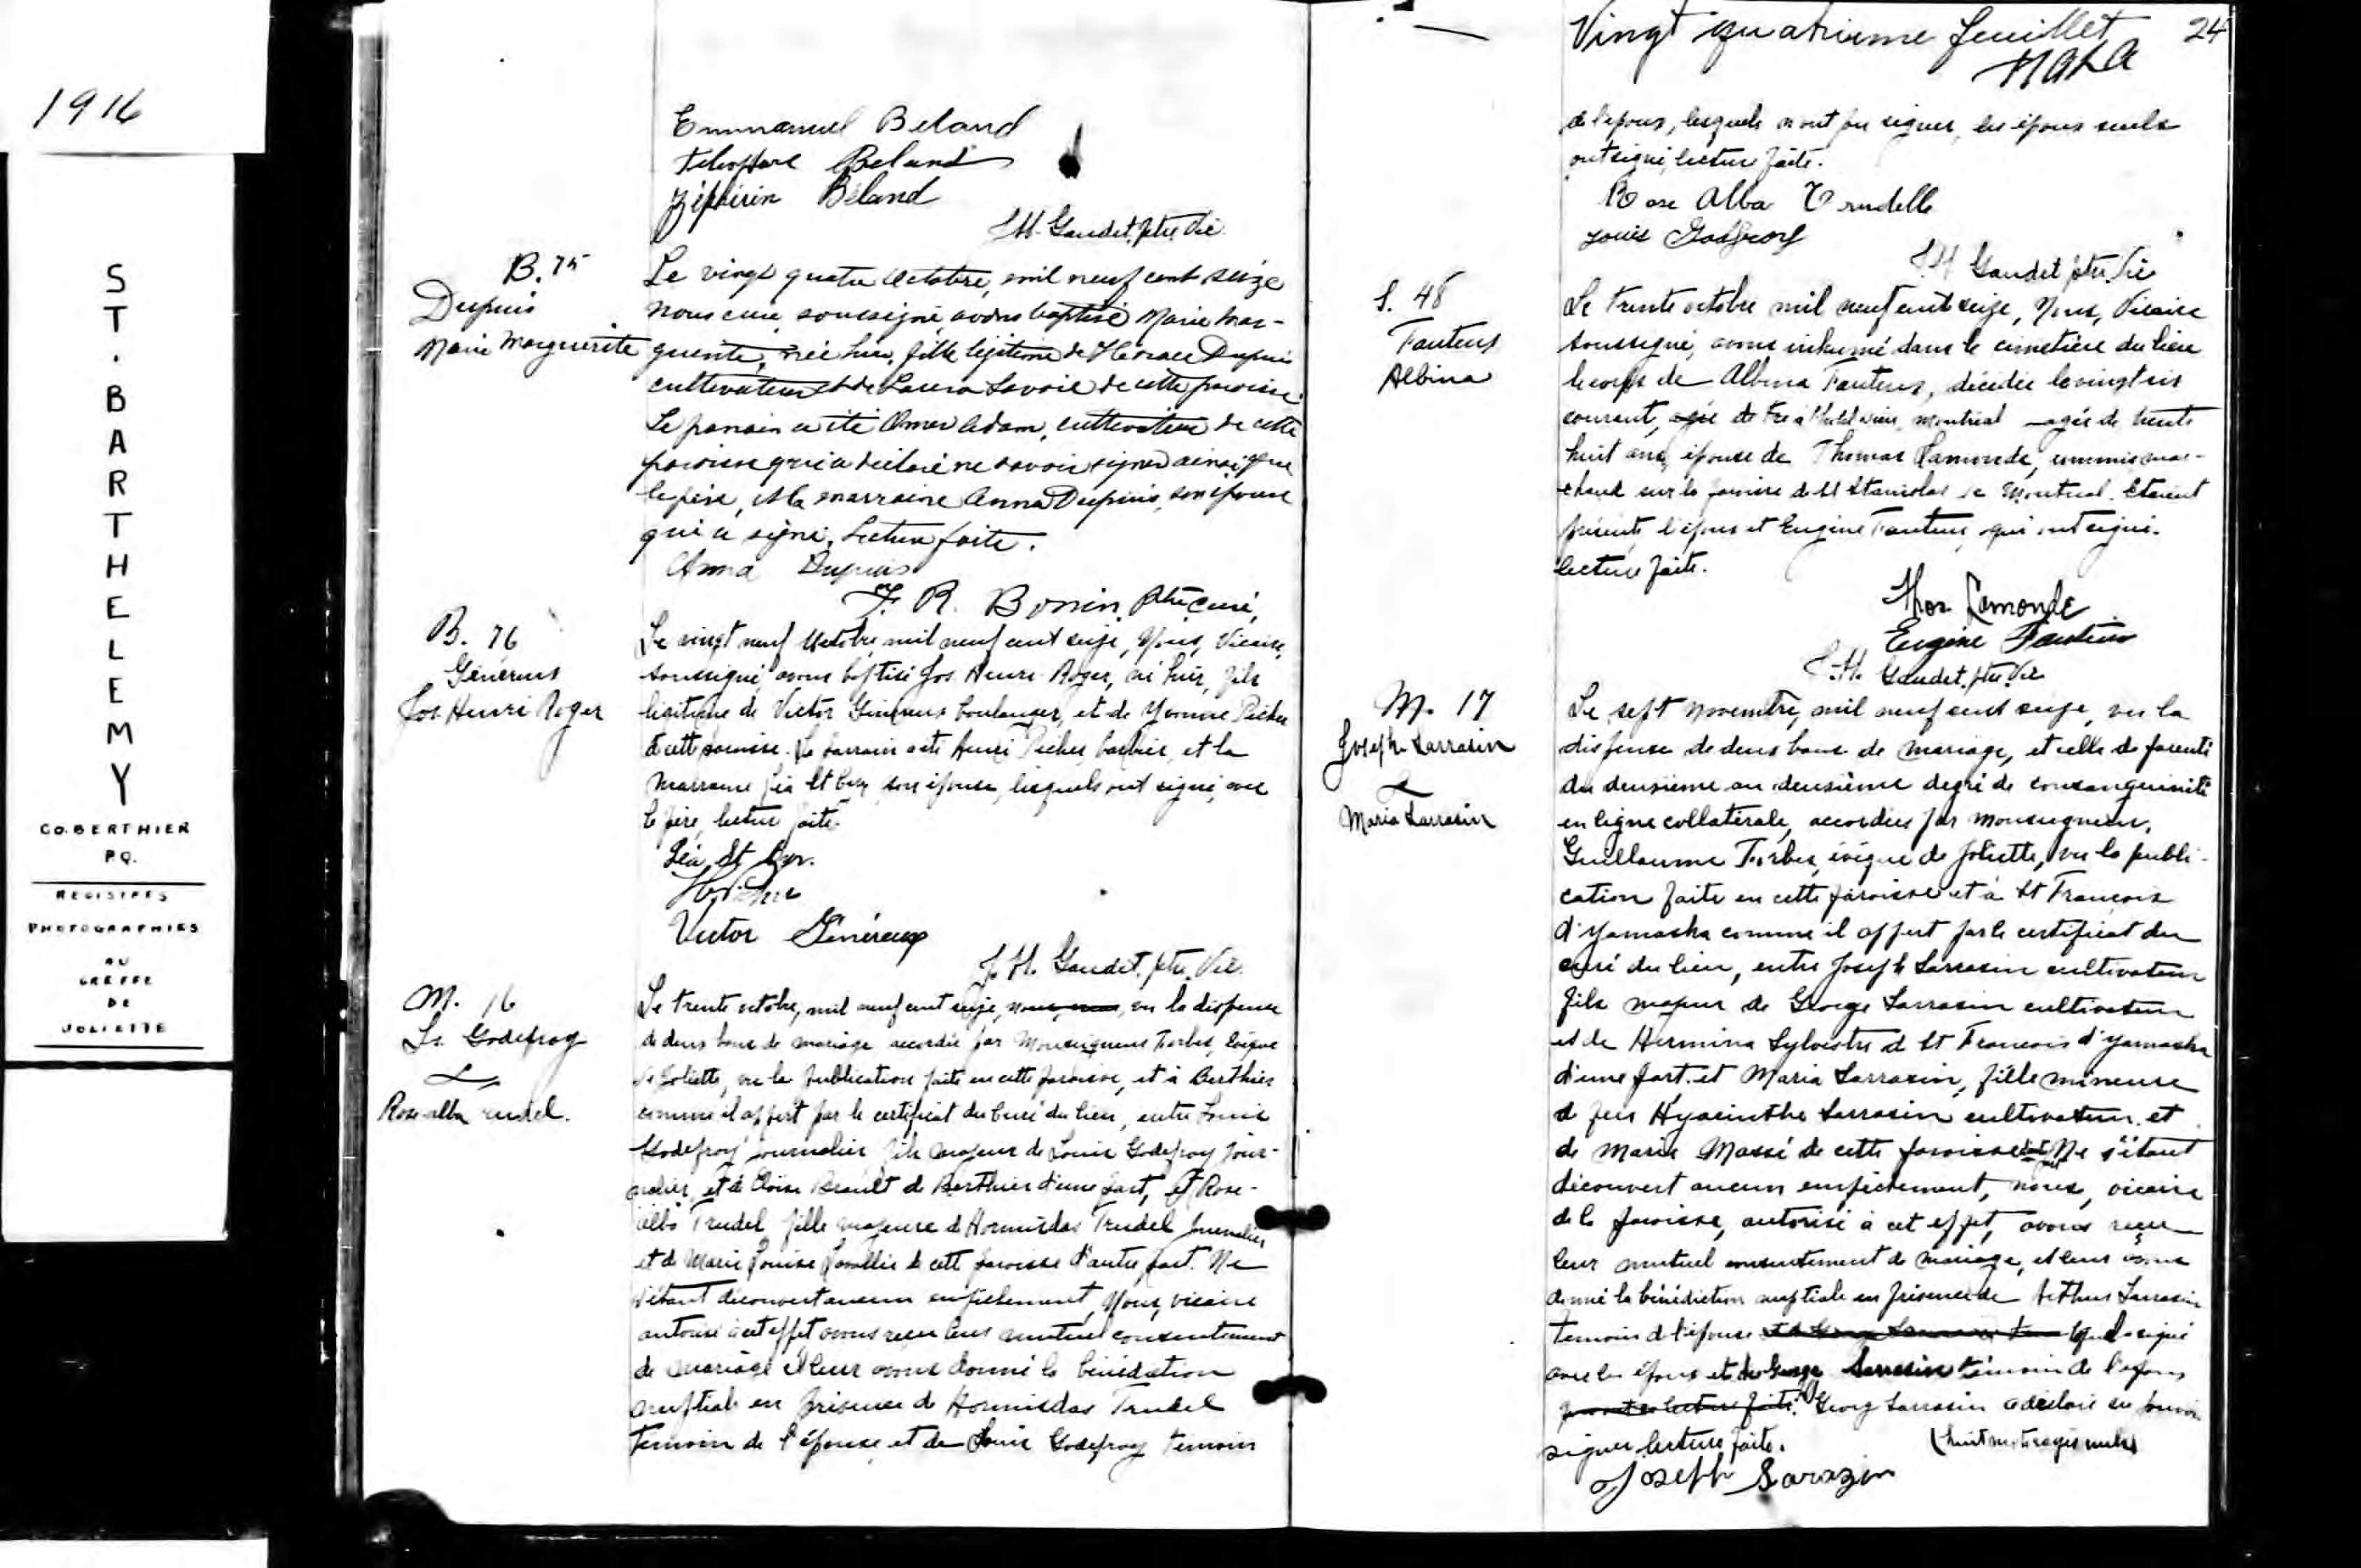 1916
ST. BARTHELEMY
CO. BERTHIER
P.Q.
REGISTRES
PHOTOGRAPHIES
AU
GREFFE
DE
JOLIETTE
Emmanuel Beland
Telesphore Beland
Zéphirin Béland
J.H. Gaudet, ptre Vic.
B. 75
Dupuis
Marie Marguerite
Le vingt quatre Octobre, mil neuf cent seize
nous curé, soussigné, avons baptisé Marie Mar-
guerite, née hier, fille légitime de Horace Dupuis
cultivateur et de Laura Savoie de cette paroisse.
Le parrain a été Omer Adam, cultivateur de cette
paroisse qui a déclaré ne savoir signer ainsi que
le père, et la marraine Anna Dupuis, son épouse
qui a signé. Lecture faite.
Anna Dupuis
F. R. Bonin, Ptre curé,
B. 76
Généreux
Jos Henri Roger
Le vingt neuf Octobre, mil neuf cent seize, Nous, Vicaire,
soussigné, avons baptisé Jos Henri Roger, né hier, fils
légitime de Victor Généreux boulanger, et de Yvonne Piché
de cette paroisse. Le parrain a été Henri Piché, barbier, et la
marraine Léa St Cyr, son épouse, lesquels ont signé avec
le père, lecture faite.
Léa St Cyr.
Victor Généreux
J. H. Gaudet, ptre, Vic.
M. 16
Ls. Godefroy
&
Rose-alba
Le trente octobre, mil neuf cent seize, vu la dispense
de deux bans de mariage accordée par Monseigneur Forbes, Evêque
de Joliette, vu la publication faite en cette paroisse, et à Berthier
comme il appert par le certificat du Curé du lieu, entre Louis
Godefroy journalier fils majeur de Louis Godefroy jour-
nalier, et de Brault de Berthier d'une part, et Rose-
alba Trudel, fille majeure de Hormisdas Trudel journalier
et de Marie Louise Lavallée de cette paroisse d'autre part. Ne
s'étant découvert aucun empêchement, Nous, vicaire
autorisé à cet effet avons reçu leur mutuel consentement
de mariage et leur avons donné la bénédiction
nuptiale en présence de Hormisdas Trudel
témoin de l'épouse, et de Louis Godefroy témoin
Vingt quatrième feuillet 24
de l'époux, lesquels n'ont pu signer, les époux seuls
ont signé, lecture faite.
Rose Alba Trudelle
Louis Godfroy
J.H. Gaudet ptre. Vic
S. 48
Fauteux
Albina
Le trente octobre mil neuf cent seize, Nous, Vicaire
soussigné, avons inhumé dans le cimetière du lieu
le corps de Albina Fauteux, décédée le vingt six
courant, Montréal agée de trente
huit ans, épouse de Thomas Lamonde, commis mar-
chand sur la paroisse de St Stanislas de Montréal. Etaient
présents, l'époux et Eugène Fauteux, qui ont signé.
lecture faite.
Thos Lamonde
Eugène Fauteux
J.H. Gaudet, ptre Vic
M. 17
Joseph Sarrasin
&
Maria Sarrasin
Le sept Novembre, mil neuf cent seize, vu la
dispense de deux bans de mariage, et celle de parenté
du deuxième au deuxième degré de consanguinité
en ligne collatérale, accordées par Monseigneur,
Guillaume Forbes, évêque de Joliette, vu la publi-
cation faite en cette paroisse et à St François
d'Yamaska comme il appert par le certificat du
curé du lieu, entre Joseph Sarrasin cultivateur
fils majeur de George Sarrasin cultivateur
et de Hermina Sylvestre de St François d'Yamaska
d'une part. et Maria Sarrasin, fille mineure
de feu Hyacinthe Sarrasin cultivateur, et
de Marie Massé de cette paroisse Ne s'étant
découvert aucun empêchement, nous, vicaire
de la paroisse, autorisé à cet effet, avons reçu
leur mutuel consentement de mariage, et leur avons
donné la bénédiction nuptiale en présence de Arthur Sarrasin
témoin de l'épouse lequel a signé
avec les époux et de George Sarrasin témoin de l'époux
George Sarrasin a déclaré ne pouvoir
signer, lecture faite. (huit mots rayés nuls)
Joseph Sarazin